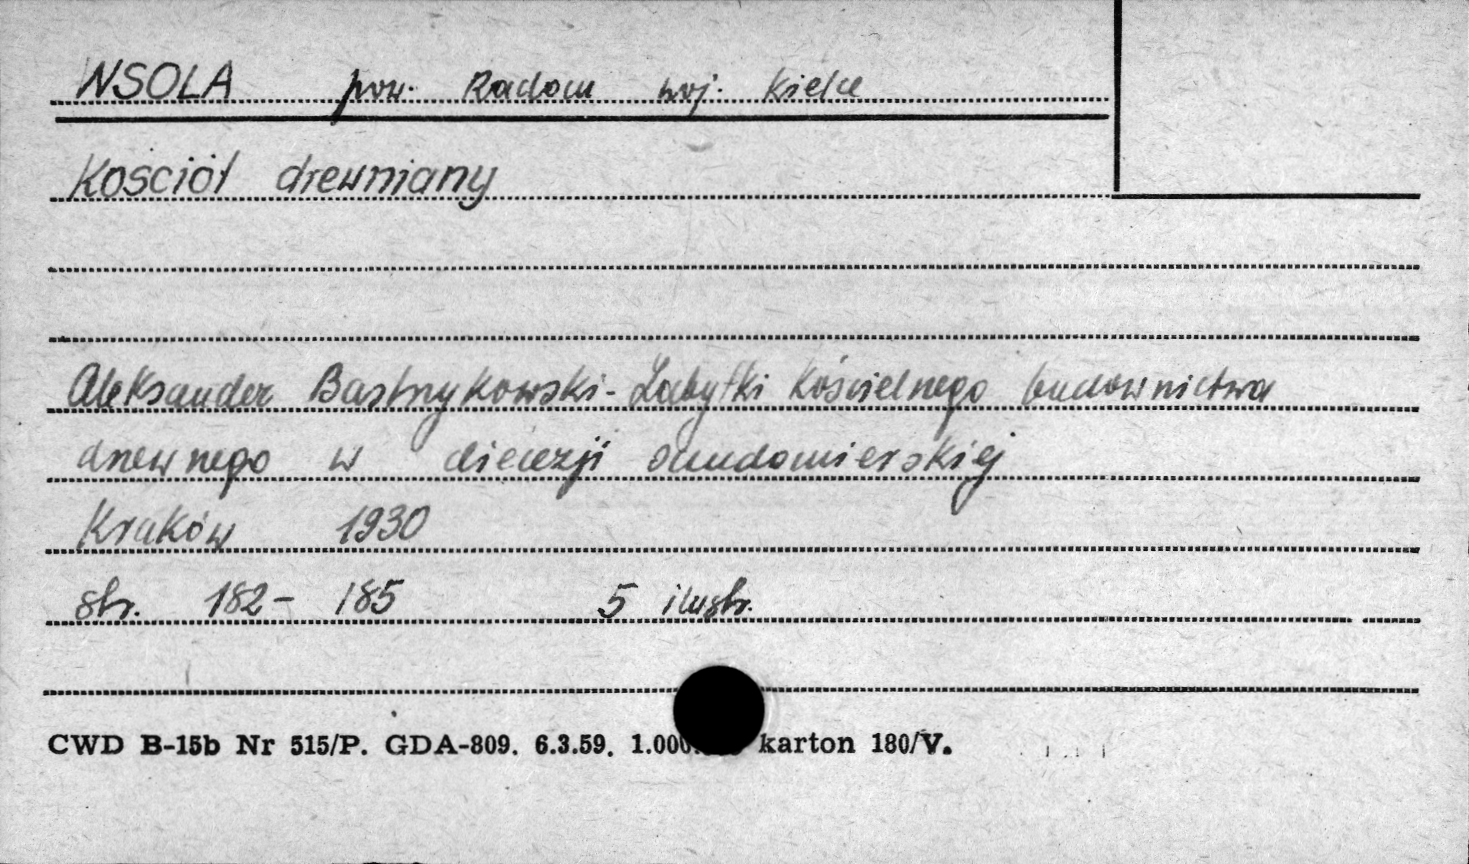 WSOLA pow. Radom woj. Kielce
Kościół drewniany
Aleksander Bastrzykowski - Zabytki kościelnego budownictwa
drzewnego w diecezji sandomierskiej
Kraków 1930
str. 182 - 185 5 ilustr.
CWD B-15b Nr 515/P. GDA-809. 6.3.59. 1.000 karton 180/V.